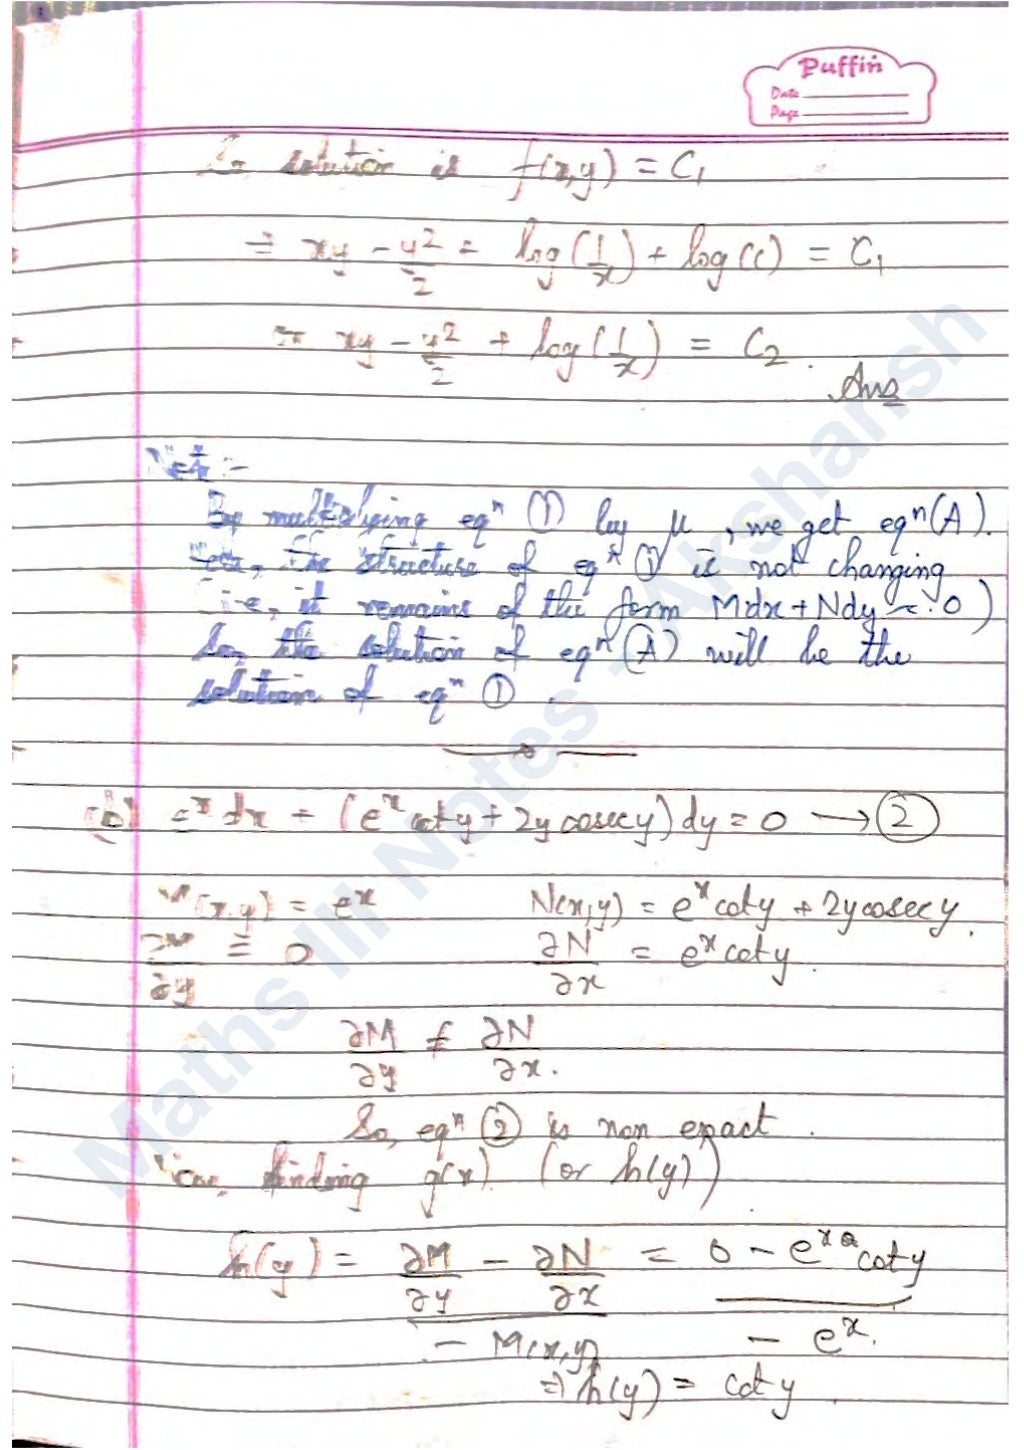 Puffin
Date
Page
So solution is f(x,y) = C₁
⇒ xy - y²/2 = log(1/x) + log(c) = C₁
⇒ xy - y²/2 + log(1/x) = C₂.
Ans
Note :-
By multiplying eqⁿ ① by μ, we get eqⁿ(A).
the structure of eqⁿ ① is not changing
i.e, it remains of the form Mdx + Ndy = 0)
So, the solution of eqⁿ(A) will be the
solution of eqⁿ ① .
(b) eˣ dx + (eˣ cot y + 2y cosec y) dy = 0 → ②
M(x,y) = eˣ N(x,y) = eˣ cot y + 2y cosec y.
∂M/∂y = 0 ∂N/∂x = eˣ cot y.
∂M/∂y ≠ ∂N/∂x.
So, eqⁿ ② is non exact.
finding g(x) (or h(y))
h(y) = (∂M/∂y - ∂N/∂x)/(- M(x,y)) = (0 - eˣ cot y)/(- eˣ.)
⇒ h(y) = cot y
Maths III Notes - Akshansh